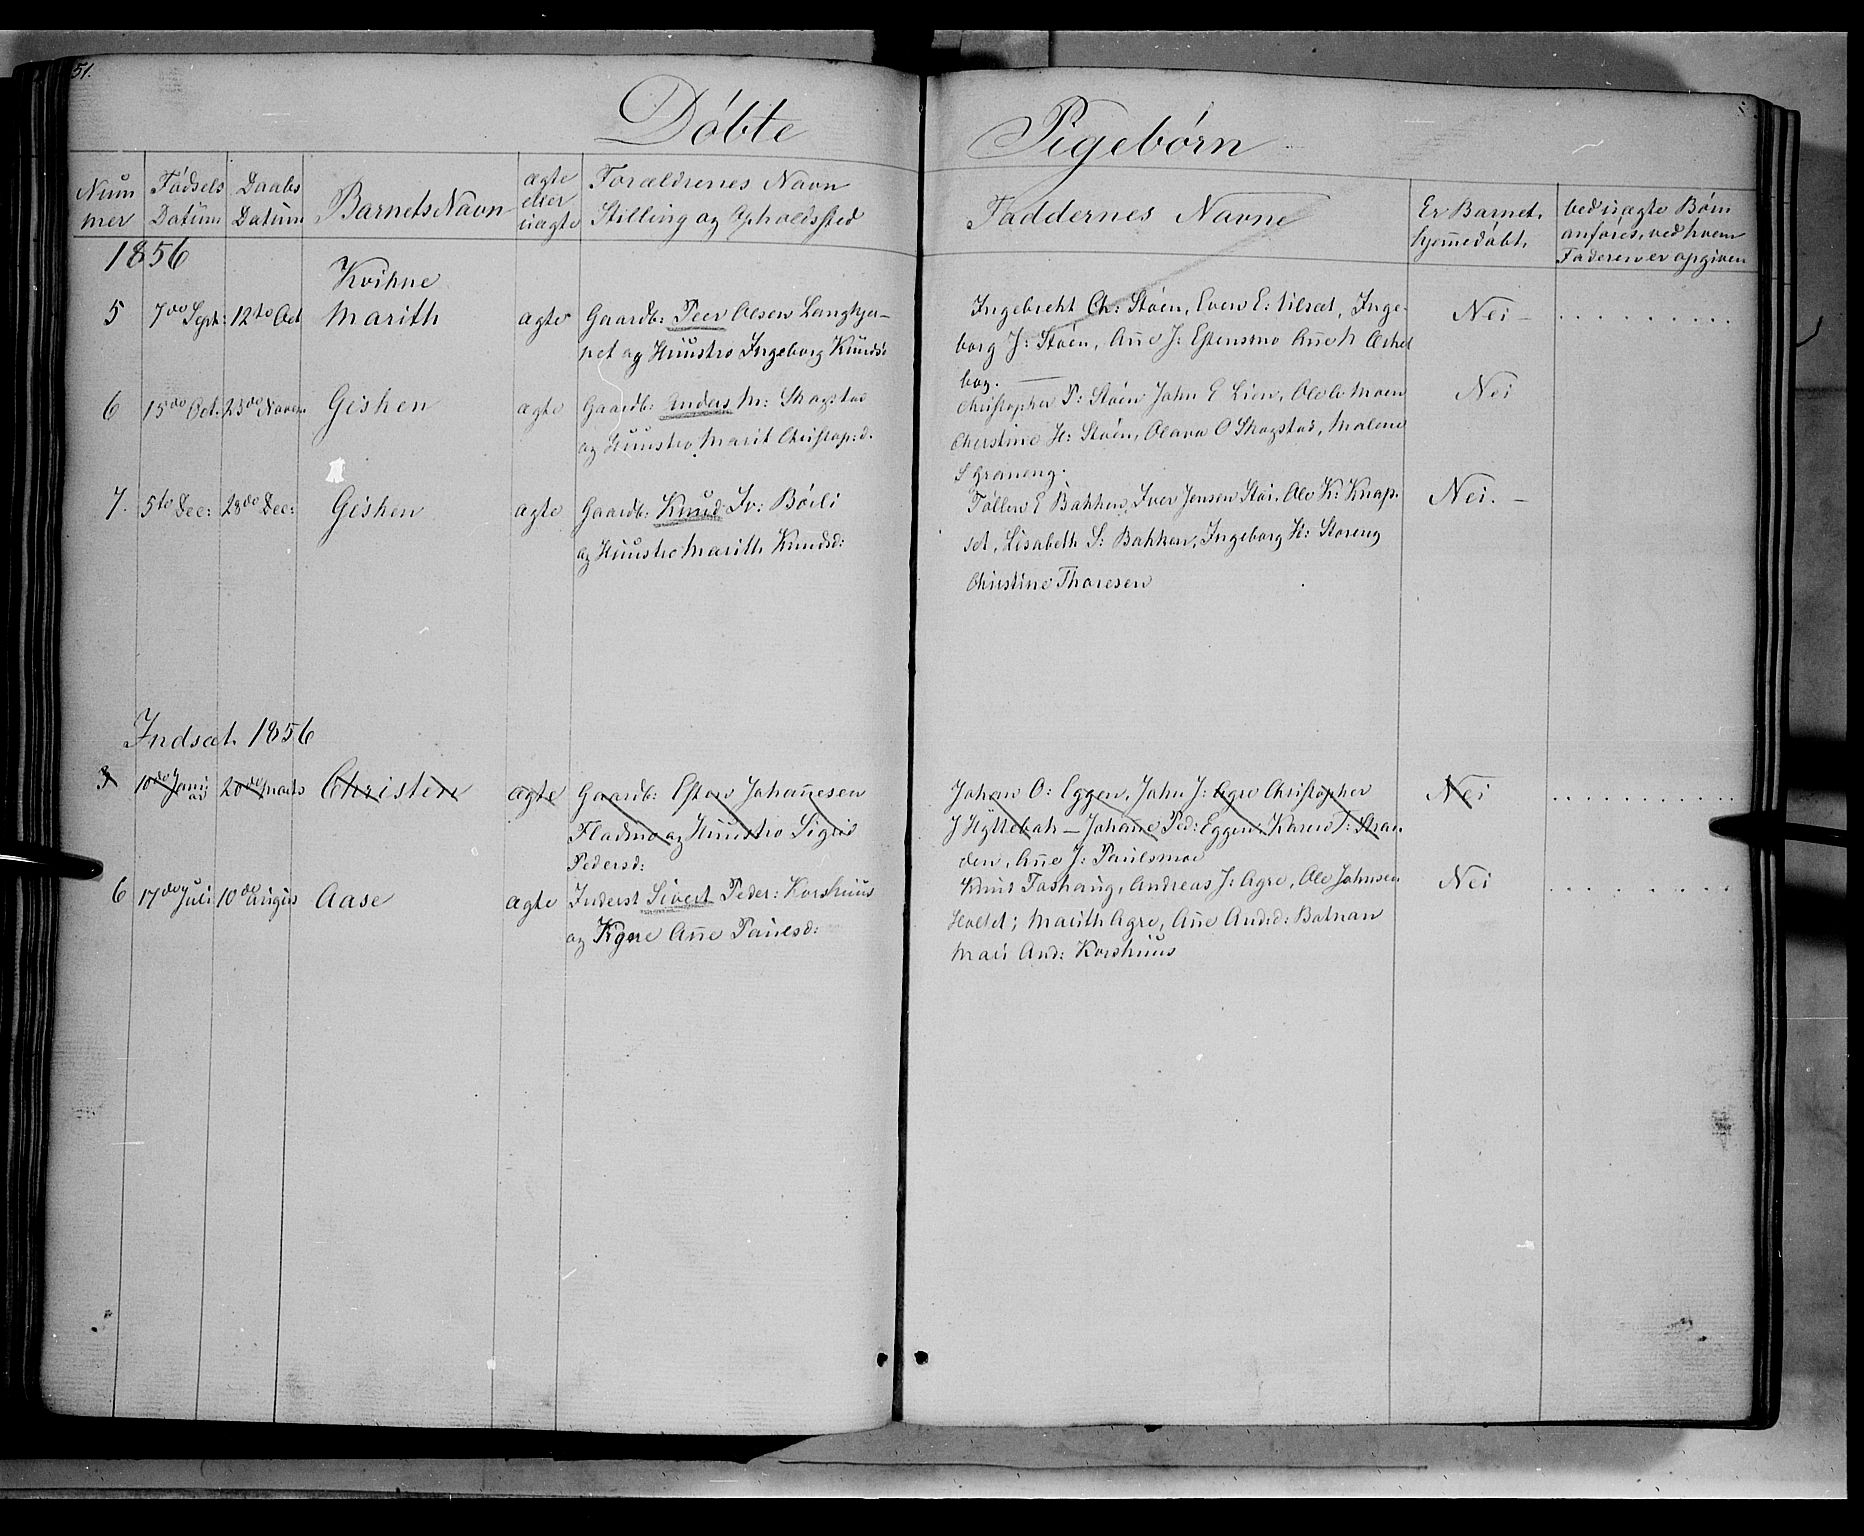 51.
Döbte Pigebörn
Num
mer
Födsels
Datum
Daabs
Datum
Barnets Navn
ægte
eller
uægte
Forældrenes Navn
Stilling og Opholdssted
Faddernes Navne
Er Barnet
hjemedöbt.
ved uægte Börn
anföres, ved hvem
Faderen er opgiven
1856
Kvihne
5 7de Septr: 12te Oct Marith ægte Gaardb: Peer Olsen Langkja-
pet og Huustro Ingeborg Knudsd
Ingebreht Ch: Stöen, Even E: Vilsæt, Inge-
borg J: Stöen, Ane J: Estensmo
Nei –
6 15de Oct. 23de Novem Gishen ægte Gaardb: Anders M: Skogstad
og Huustro Marit Christop:d.
Christopher P: Stöen John E Lien, Ole O Moen
Cherstine H: Stöen, Olava O Skogstad, Malene
S Graneng.
Nei
7. 5te Dec: 28de Dec: Gishen ægte Gaardb: Knud Iv: Börli
og Huustro Marith Knudsd:
Tollew E Bakken, Iver Jensen Stai, Ole K: Knap-
set, Lisabeth S: Bakken, Ingeborg H: Storeng
Christine Thoresen
Nei. –
Indsæt. 1856
3 10de Janu
ar 20de Marts Christen ægte Gaardb: Esten Johanesen
Fladmo og Huustro Sigrid
Pedersd:
Johan O: Eggen, John J: Agre Christopher
J Hyttebak – Johane Ped: Eggen, Karen T: Stran-
den, Ane J: Paulsmoe
Nei
6 17de Juli 10de August Aase ægte Inderst Sivert Peder: Korshuus
og Kone Ane Paulsd:
Knud Toshaug, Andreas J: Agre, Ole Johnsen
Holtet; Marith Agre, Ane Andrd: Batnan
Mari And: Korshuus
Nei